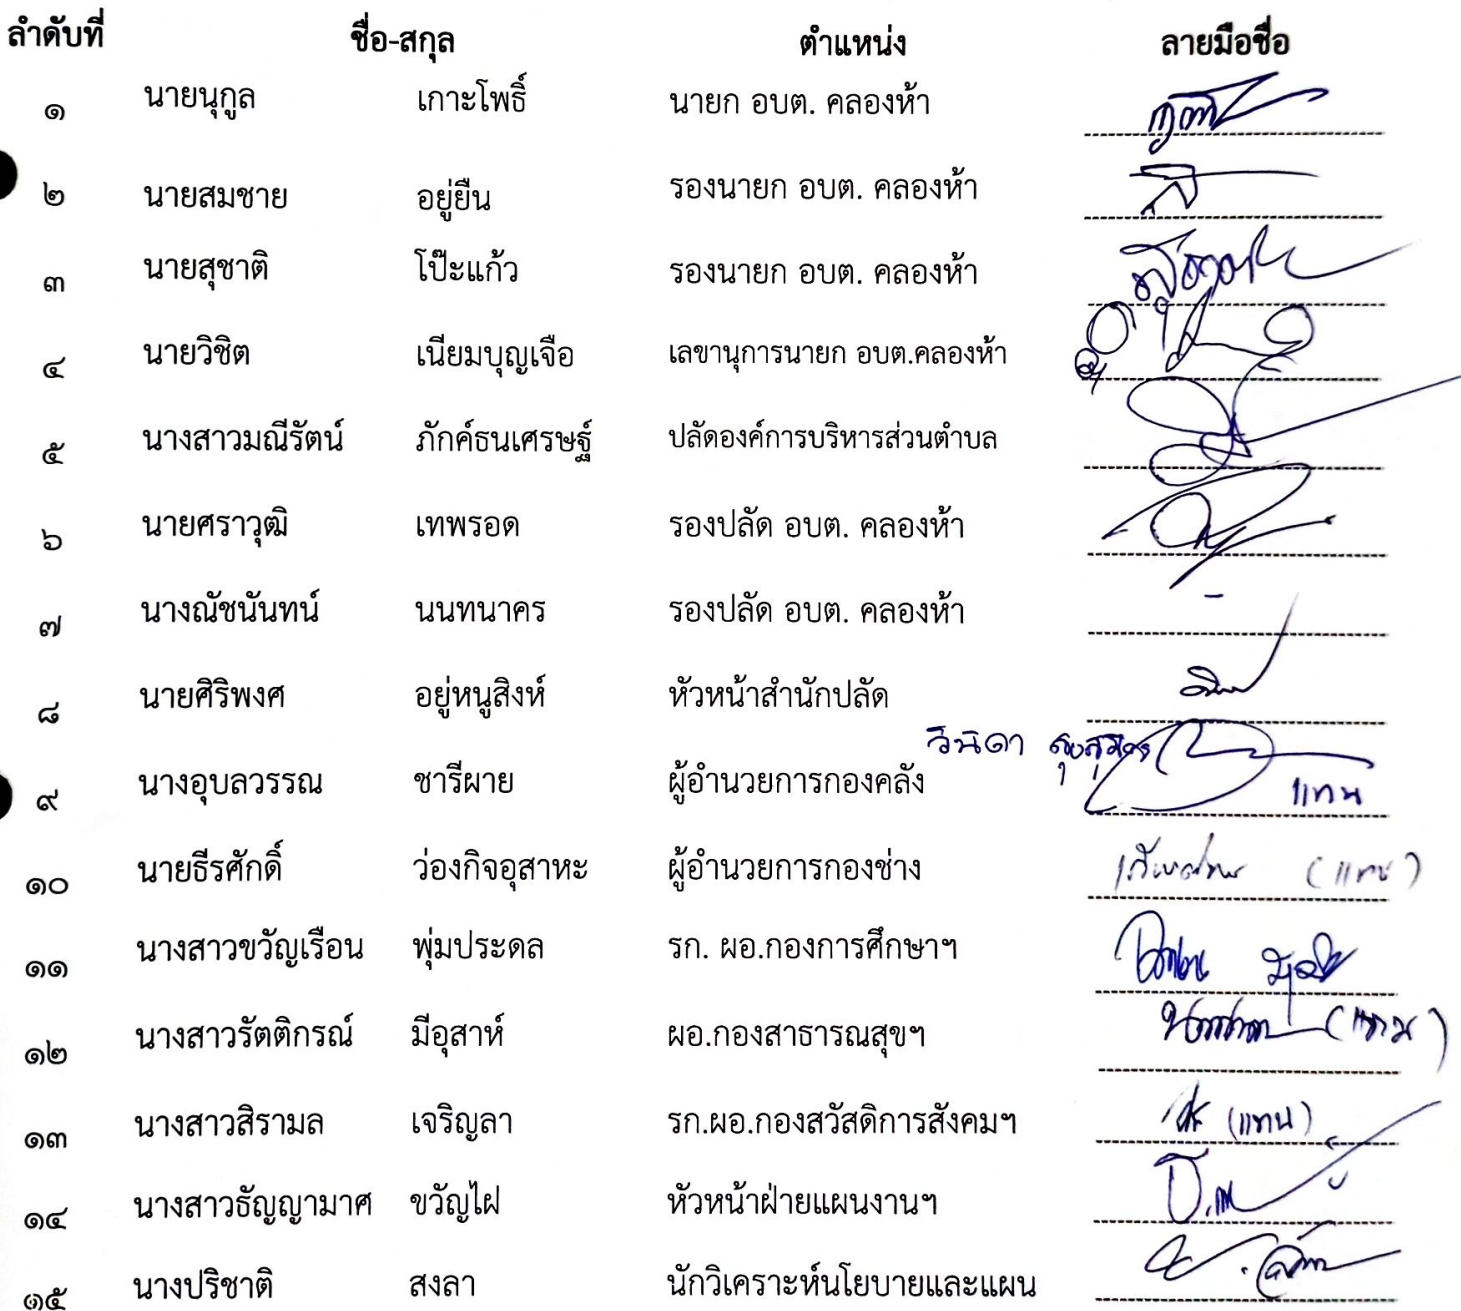 ลำดับที่ ชื่อ-สกุล ตำแหน่ง ลายมือชื่อ
๑ นายนุกูล เกาะโพธิ์ นายก อบต. คลองห้า
๒ นายสมชาย อยู่ยืน รองนายก อบต. คลองห้า
๓ นายสุชาติ โป๊ะแก้ว รองนายก อบต. คลองห้า
๔ นายวิชิต เนียมบุญเจือ เลขานุการนายก อบต.คลองห้า
๕ นางสาวมณีรัตน์ ภักค์ธนเศรษฐ์ ปลัดองค์การบริหารส่วนตำบล
๖ นายศราวุฒิ เทพรอด รองปลัด อบต. คลองห้า
๗ นางณัชนันทน์ นนทนาคร รองปลัด อบต. คลองห้า -
๘ นายศิริพงศ อยู่หนูสิงห์ หัวหน้าสำนักปลัด
วินิดา
๙ นางอุบลวรรณ ชารีผาย ผู้อำนวยการกองคลัง แทน
๑๐ นายธีรศักดิ์ ว่องกิจอุสาหะ ผู้อำนวยการกองช่าง (แทน)
๑๑ นางสาวขวัญเรือน พุ่มประดล รก. ผอ.กองการศึกษาฯ
๑๒ นางสาวรัตติกรณ์ มีอุสาห์ ผอ.กองสาธารณสุขฯ (แทน)
๑๓ นางสาวสิรามล เจริญลา รก.ผอ.กองสวัสดิการสังคมฯ (แทน)
๑๔ นางสาวธัญญามาศ ขวัญไฝ หัวหน้าฝ่ายแผนงานฯ
๑๕ นางปริชาติ สงลา นักวิเคราะห์นโยบายและแผน